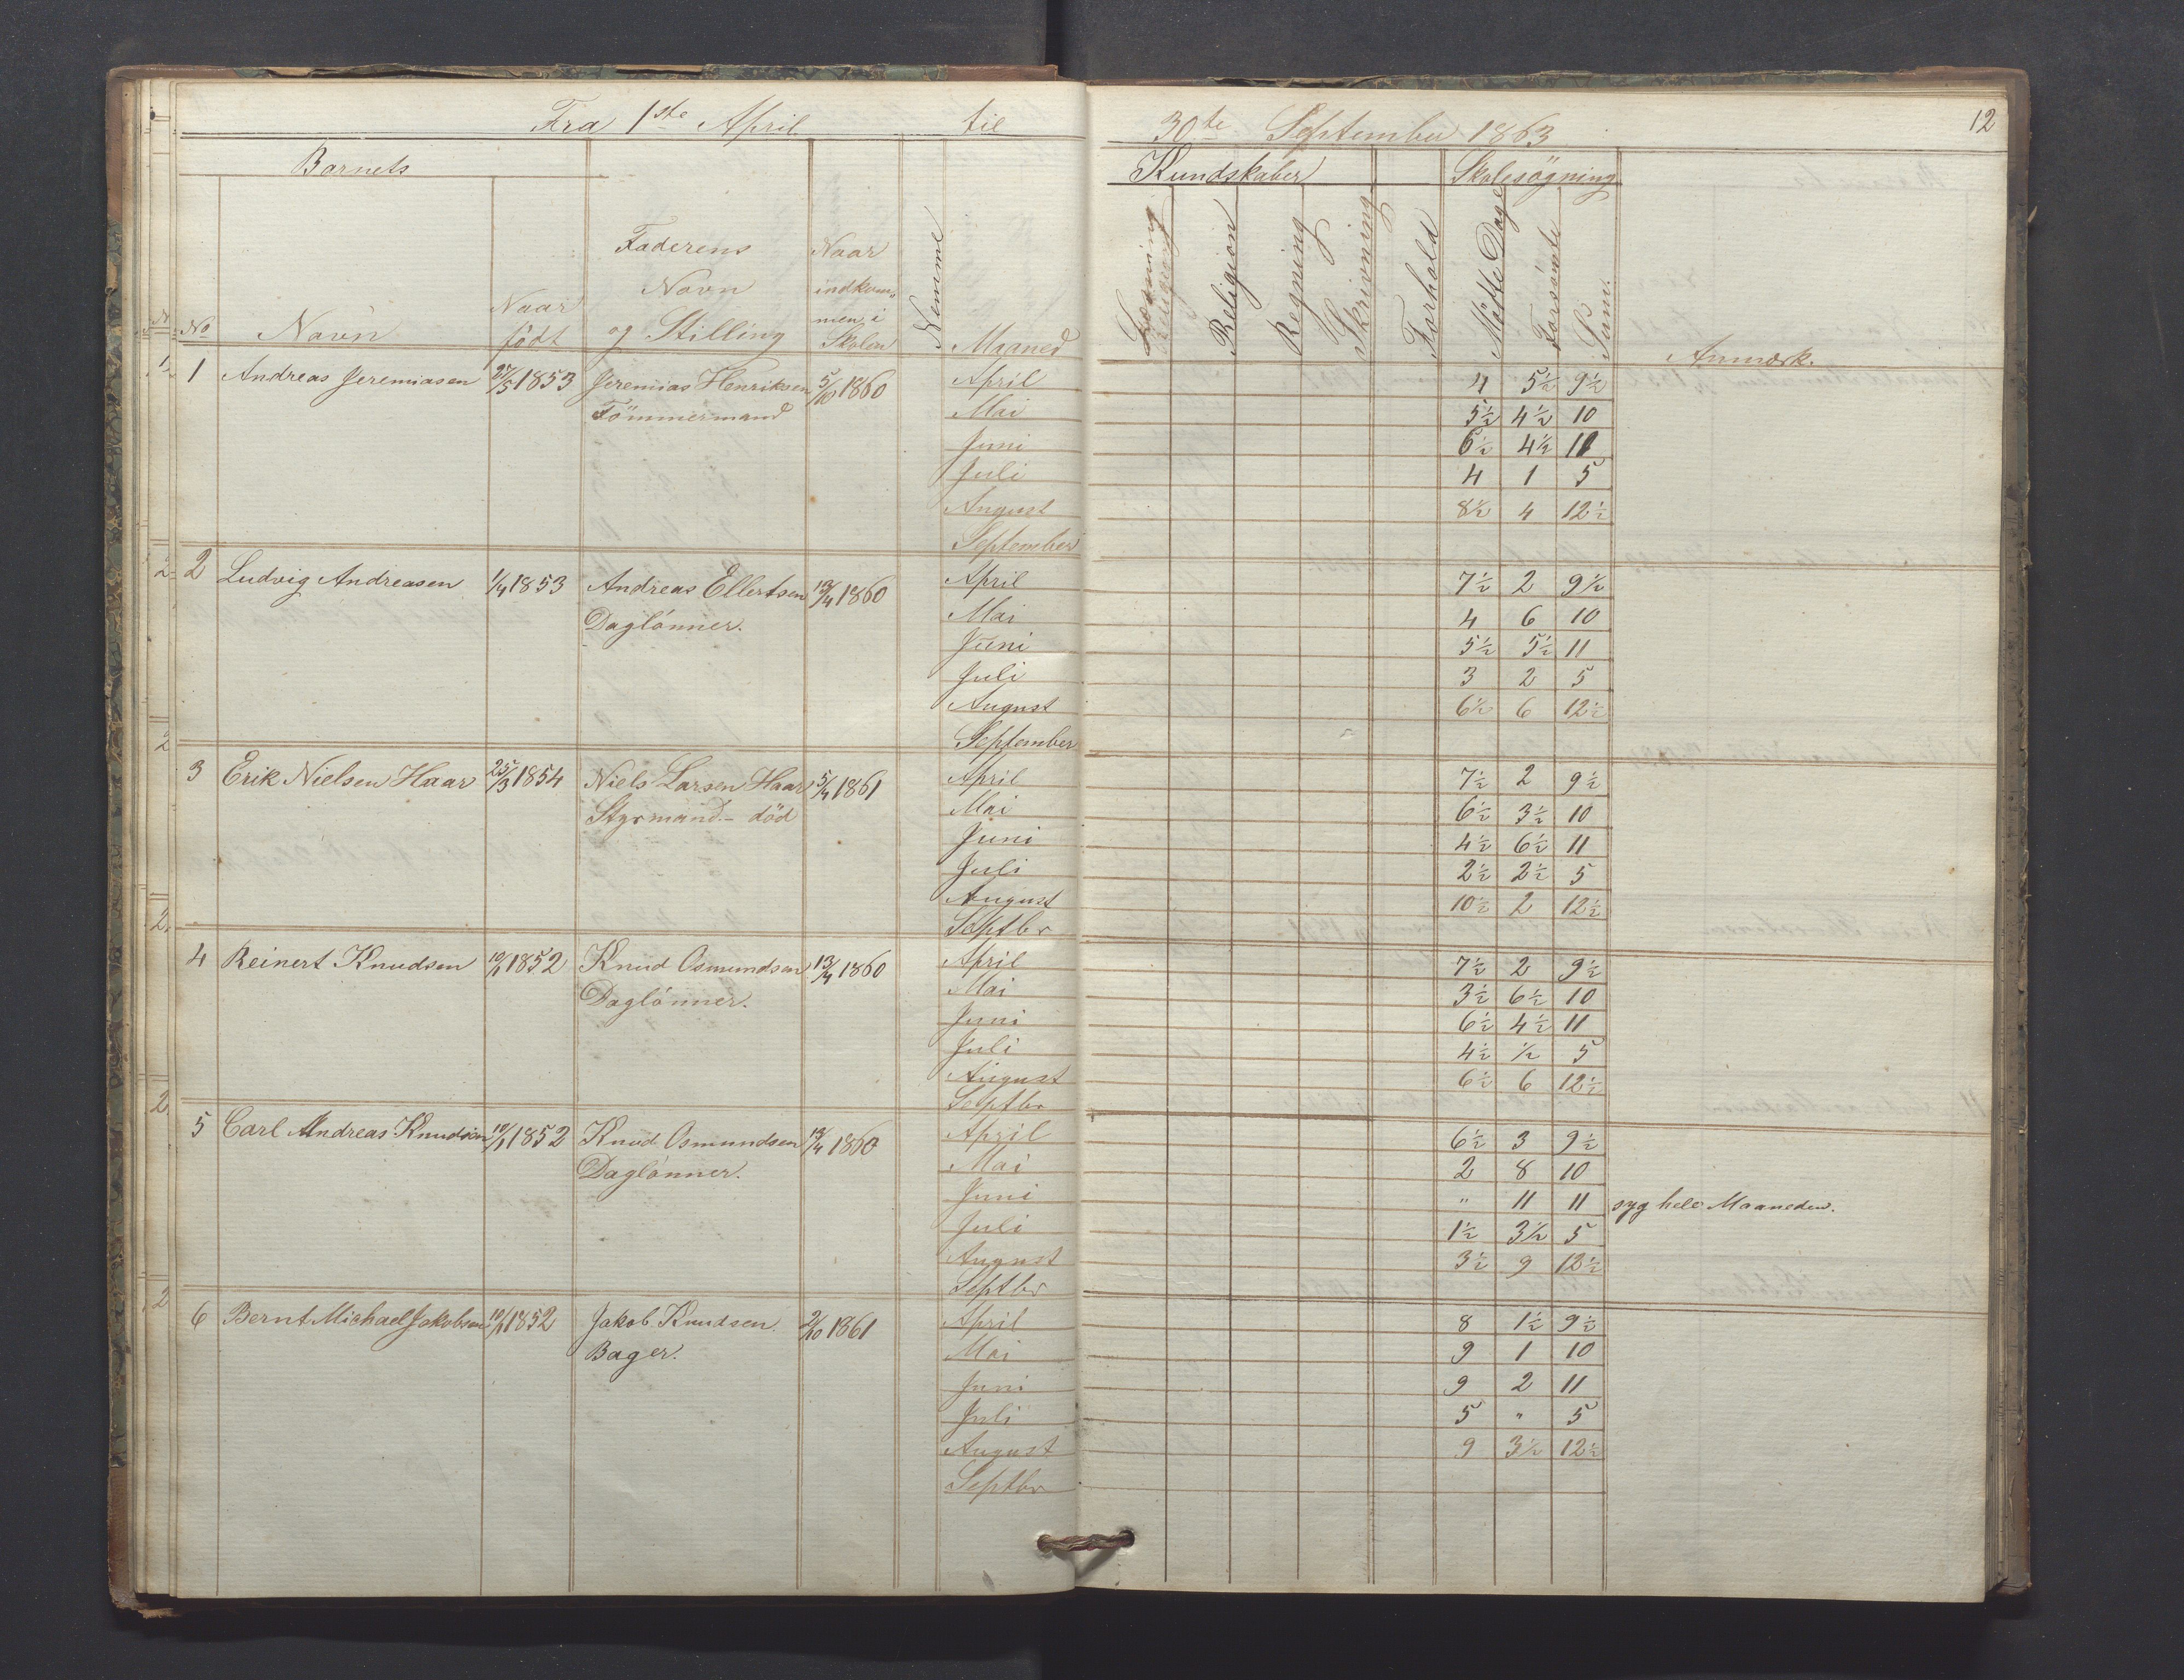 Fra 1ste April til 30te September 1863 12
Barnets Kundskaber Skolesögning
No Navn Naar födt Faderens Navn og Stilling Naar indkommen i Skolen Nemme Maaned Religion Regning Skrivning Forhold Mötte Dage Forsömte Sum. Anmærk.
1 Andreas Jeremiasen 27/5 1853 Jeremias Henriksen 5/10 1860 April 4 5½ 9½
Tömmermand Mai 5½ 4½ 10
Juni 6½ 4½ 11
Juli 4 1 5
August 8½ 4 12½
September
2 Ludvig Andreasen 1/4 1853 Andreas Ellertsen 13/4 1860 April 7½ 2 9½
Daglönner. Mai 4 6 10
Juni 5½ 5½ 11
Juli 3 2 5
August 6½ 6 12½
September
3 Erik Nielsen Haar 25/3 1854 Niels Larsen Haar 5/4 1861 April 7½ 2 9½
Styrmand.- död Mai 6½ 3½ 10
Juni 4½ 6½ 11
Juli 2½ 2½ 5
August 10½ 2 12½
Septbr
4 Reinert Knudsen 10/11 1852 Knud Osmundsen 13/4 1860 April 7½ 2 9½
Daglönner. Mai 3½ 6½ 10
Juni 6½ 4½ 11
Juli 4½ ½ 5
August 6½ 6 12½
Septbr
5 Carl Andreas Knudsen 10/11 1852 Knud Osmundsen 13/4 1860 April 6½ 3 9½
Daglönner. Mai 2 8 10
Juni " 11 11 syg hele Maaneden.
Juli 1½ 3½ 5
August 3½ 9 12½
Septbr
6 Bernt Michael Jakobsen 10/11 1852 Jakob Knudsen 2/10 1861 April 8 1½ 9½
Bager. Mai 9 1 10
Juni 9 2 11
Juli 5 " 5
August 9 3½ 12½
Septbr